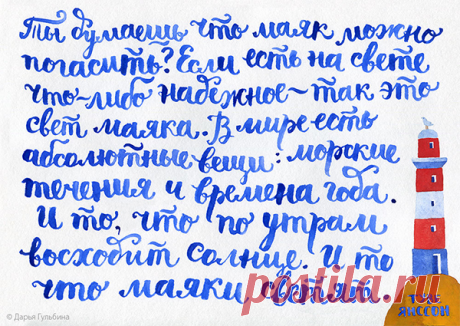 Ты думаешь что маяк можно
погасить? Если есть на свете
что-либо надежное – так это
свет маяка. В мире есть
абсолютные вещи: морские
течения и времена года.
И то, что по утрам
восходит солнце. И то
что маяки
Янссон
© Дарья Гульбина